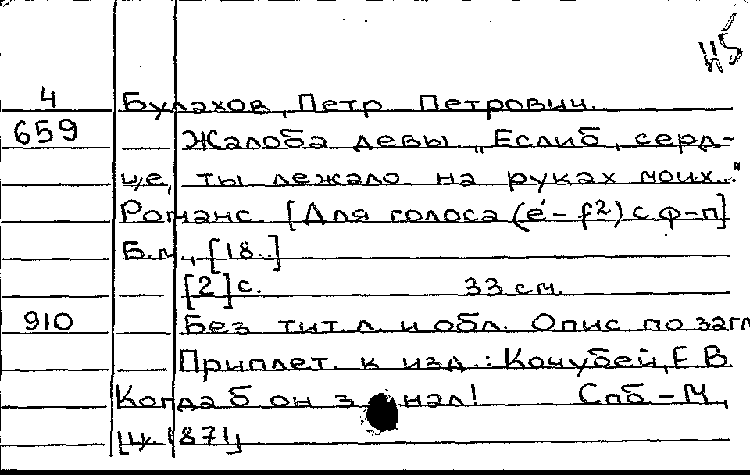 н5
4 Булахов, Петр Петрович.
659 Жалоба девы „Еслиб, серд-
це, ты лежало на руках моих.."
Романс. [Для голоса (e'- f²) с ф-п]
Б.м., [18..]
[2] с. 33 см.
910 Без тит. л. и обл. Опис по загл
Приплет. к изд.: Кочубей, Е В
Когда б он знал! Спб - М,
[ц. 1871]